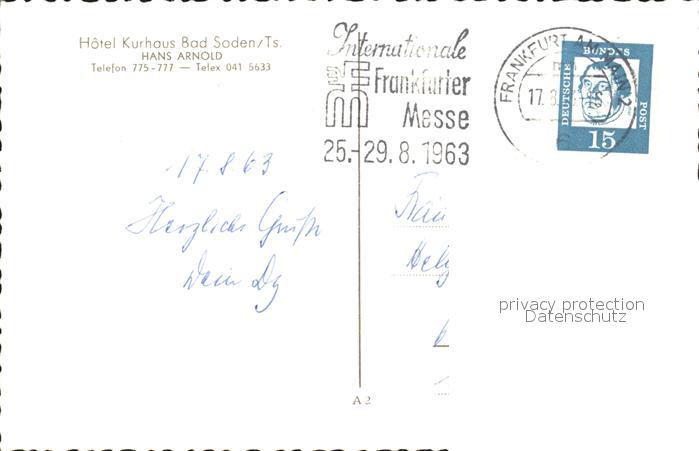 Hôtel Kurhaus Bad Soden/Ts.
HANS ARNOLD
Telefon 775-777 — Telex 041 5633
Internationale
Frankfurter
Messe
25.-29.8.1963
FRANKFURT AM MAIN 2
17.8.
DEUTSCHE
BUNDES
POST
15
17.8.63
Herzliche Grüße
Dein
Frau
privacy protection
Datenschutz
A 2